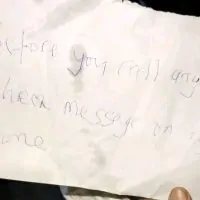 before you call any
check message on